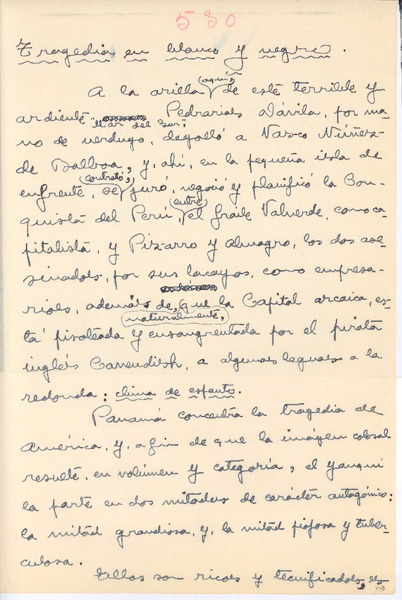 530
Tragedia en blanco y negro.
A la orilla (aquí,) de este terrible y
ardiente Mar del Sur; Pedrarias Dávila, por ma-
no de verdugo, degolló a Vasco Núñez
de Balboa, y, ahí, en la pequeña isla de
enfrente, se (contrató,) juró, negoció y planificó la Con-
quista del Perú, (entre) el fraile Valverde, como ca-
pitalista, y Pizarro y Almagro, los dos ase-
sinados, por sus lacayos, como empresa-
rios, además de, que la Capital arcaica, es-
tá (naturalmente,) pisoteada y ensangrentada por el pirata
inglés Cavendish, a algunas leguas a la
redonda: clima de espanto.
Panamá concentra la tragedia de
América, y, a fin de que la imágen colosal
resulte, en volúmen y categoría, el yanqui
la parte en dos mitades de carácter antagónico:
la mitad grandiosa, y, la mitad piojosa y tuber-
culosa.
Ellas son ricos y tecnificados, los